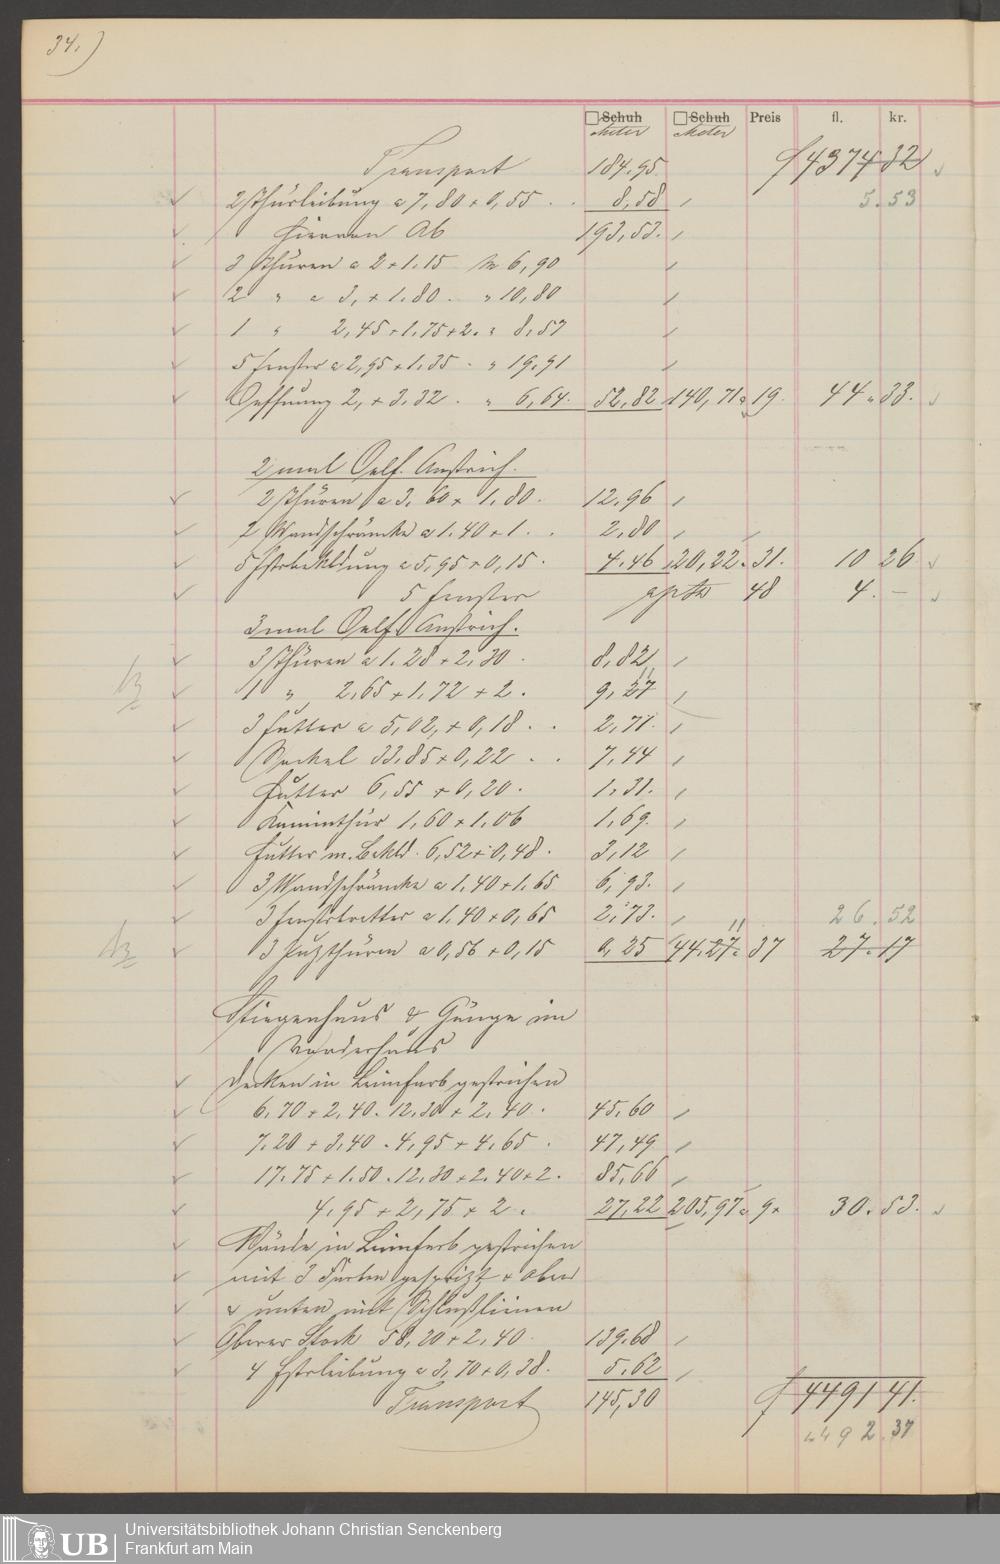 34.)
□ Schuh □ Schuh Preis fl. kr.
Meter Meter
Transport 184,95. f 4374 32
2 Thürleibung a 7,80 + 0,55 . . 8,58 5.53
Hiervon Ab 193,53.
3 Thüren a 2 + 1.15 M 6,90
2 " a 3, + 1.80 . " 10,80
1 " 2,45 + 1,75 + 2. " 8,57
5 Fenster a 2,95 + 1.35 . " 19,91
Oeffnung 2, + 3.32 . " 6,64. 52,82 140,71 a 19. 44 " 33.
2 mal Oelf. Anstrich.
2 Thüren a 3.60 + 1.80 . 12,96
2 Wandschränke a 1.40 + 1 . . 2,80
5 Fstrbekldung a 5,95 + 0,15 . 4.46 20,22 . 31. 10 26
5 Fenster 48 4. —
3 mal Oelf. Anstrich.
3 Thüren a 1.28 + 2,30 . 8,82
1 " 2,65 + 1,72 + 2 . 9, 27 11
3 Futter a 5,02, + 0,18 . . 2,71.
Sockel 33,85 + 0,22 . . 7,44
Futter 6,55 + 0,20 . 1.31.
Kaminthür 1,60 + 1,06 1,69.
Futter m. Bekld. 6,52 + 0,48 . 3,12
3 Wandschränke a 1,40 + 1.65 6,93.
3 Fenstertritter a 1,40 + 0,65 2,73. 26.52
3 Putzthüren a 0,56 + 0,15 0,25 44.27. 11 37 27.17
Stiegenhaus & Gänge im
Vorderhaus
Decken in Leimfarb gestrichen
6,70 + 2,40 . 12.30 + 2,40 . 45,60
7.20 + 3,40 . 4,95 + 4.65 . 47,49
17.75 + 1.50 . 12,30 + 2.40 + 2 . 85,66
4,95 + 2,75 + 2 . 27,22 205,97 a 9 30. 53.
Wände in Leimfarb gestrichen
mit 3 Farben gespritzt & oben
& unten mit Schlußlinien
Oberer Stock 58,20 + 2,40 139.68
4 Fstrleibung a 3,70 + 0,38. 5.62
Transport 145,30 f 4491 41.
4492.37
Universitätsbibliothek Johann Christian Senckenberg
Frankfurt am Main
UB